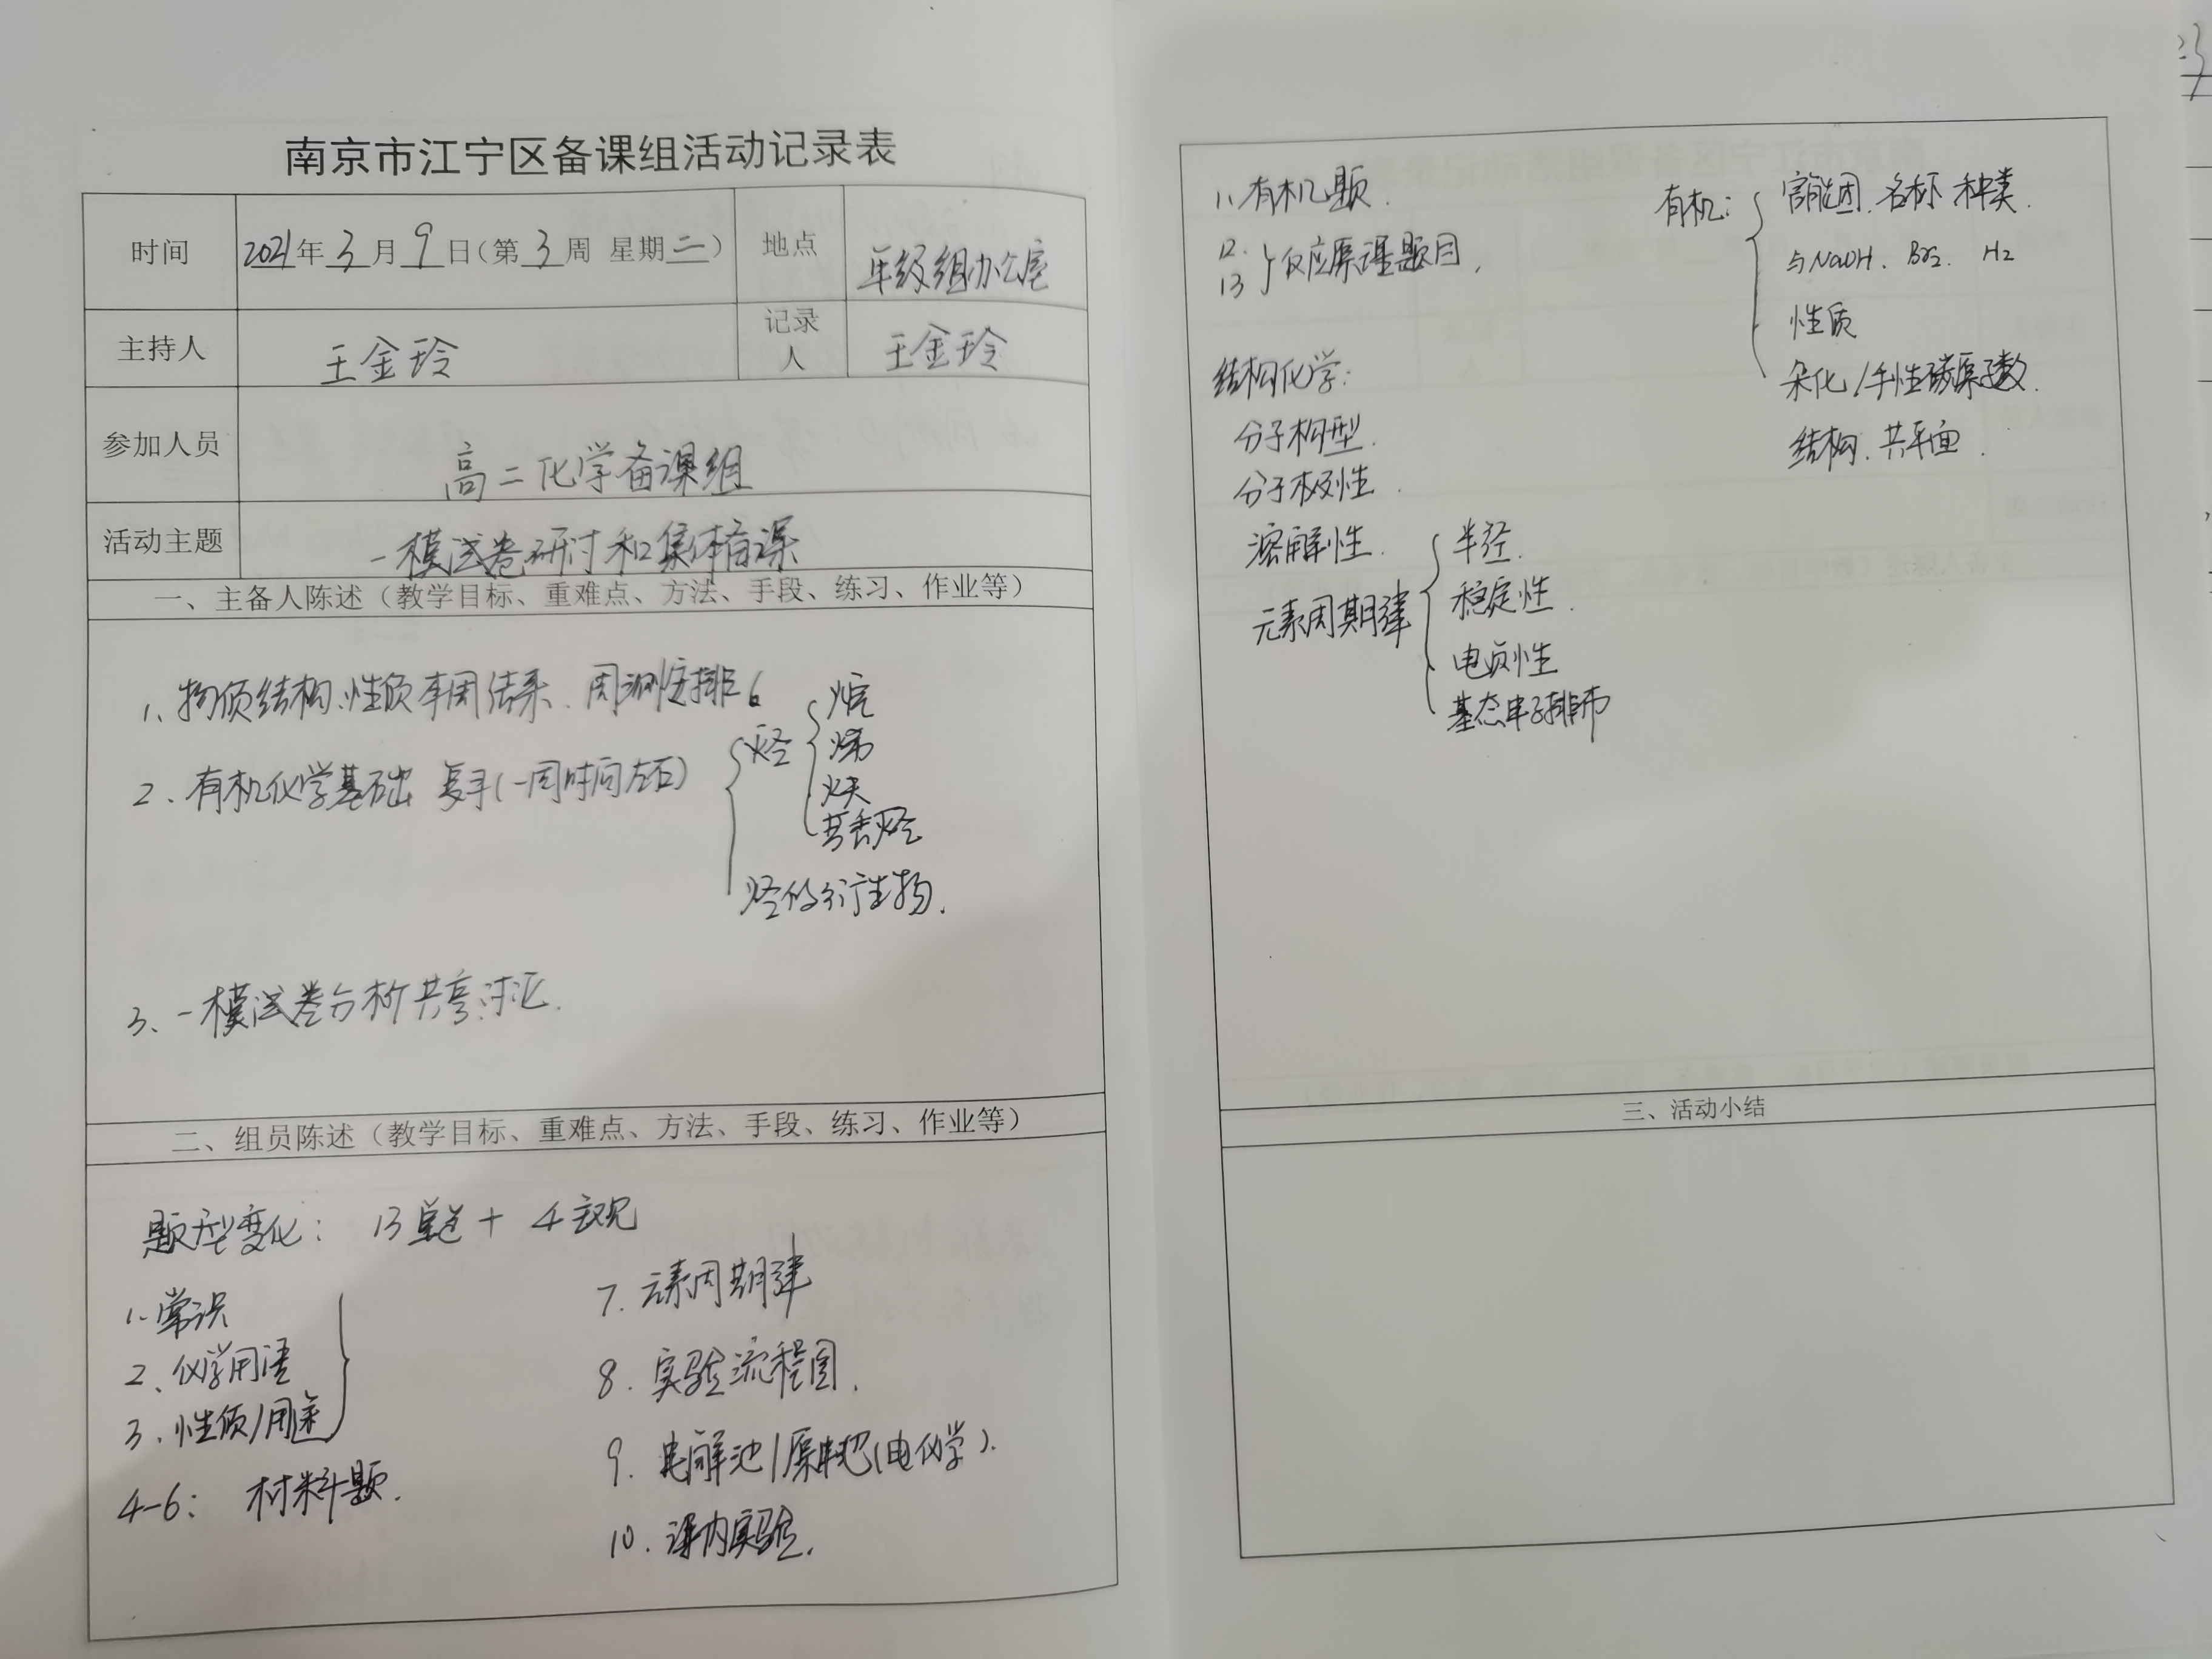 南京市江宁区备课组活动记录表
时间 2021年3月9日（第3周 星期二） 地点 年级组办公室
主持人 王金玲 记录人 王金玲
参加人员 高二化学备课组
活动主题 一模试卷研讨和集体备课
一、主备人陈述（教学目标、重难点、方法、手段、练习、作业等）
1、物质结构、性质本周结束、周测安排。
2、有机化学基础 复习（一周时间左右）
烃
烷
烯
炔
芳香烃
烃的衍生物.
3、一模试卷分析共享讨论.
二、组员陈述（教学目标、重难点、方法、手段、练习、作业等）
题型变化： 13单选 + 4主观
1、常识
2、化学用语
3、性质/用途
4-6： 材料题.
7. 元素周期律
8. 实验流程图.
9. 电解池/原电池(电化学).
10. 课内实验.
11. 有机题.
12.
13 } 反应原理题目.
结构化学：
分子构型.
分子极性.
溶解性.
元素周期律
半径.
稳定性.
电负性
基态电子排布
有机：
官能团. 名称 种类.
与NaOH、Br2、H2
性质
杂化/手性碳原子数.
结构. 共平面.
三、活动小结